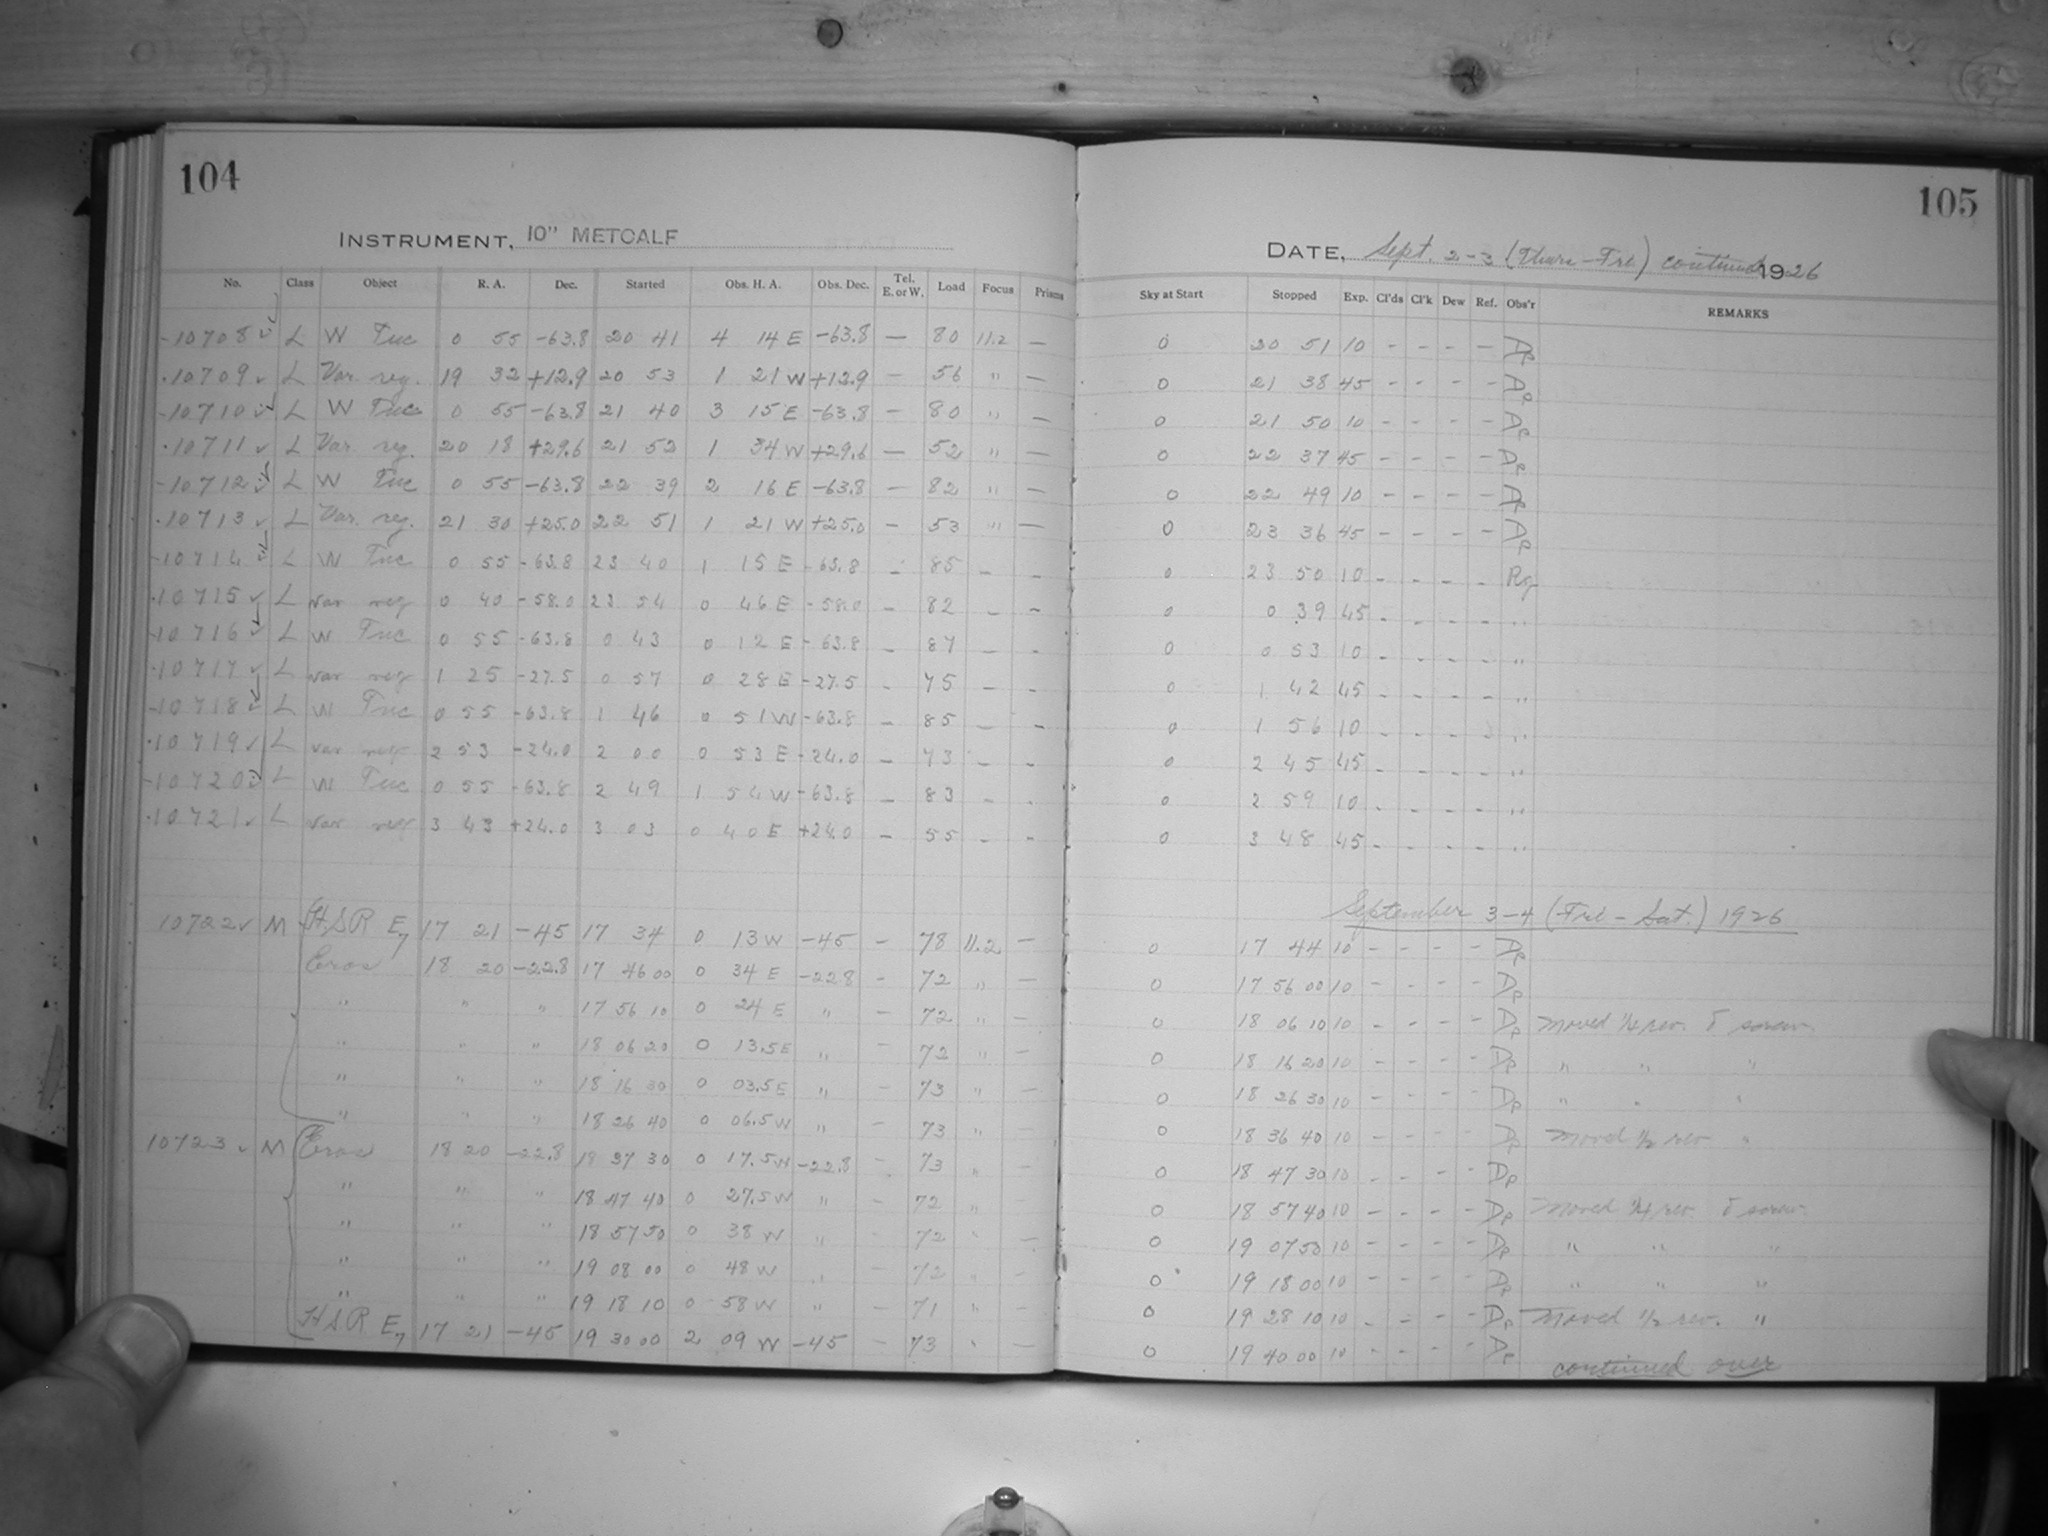 104
INSTRUMENT, 10" METCALF
No. Class Object R. A. Dec. Started Obs. H. A. Obs. Dec. Tel. E. or W. Load Focus Prisms
-10708 ✓ L W Tuc 0 55 -63.8 20 41 4 14 E -63.8 — 80 11.2 —
.10709 ✓ L Var. reg. 19 32 +12.9 20 53 1 21 W +12.9 — 56 " —
-10710 ✓ L W Tuc 0 55 -63.8 21 40 3 15 E -63.8 — 80 " —
.10711 ✓ L Var. reg. 20 18 +29.6 21 52 1 34 W +29.6 — 52 " —
-10712 ✓ L W Tuc 0 55 -63.8 22 39 2 16 E -63.8 — 82 " —
.10713 ✓ L Var. reg. 21 30 +25.0 22 51 1 21 W +25.0 — 53 " —
-10714 ✓ L W Tuc 0 55 -63.8 23 40 1 15 E -63.8 — 85 — —
.10715 ✓ L var reg 0 40 -58.0 23 54 0 46 E -58.0 — 82 — —
-10716 ✓ L W Tuc 0 55 -63.8 0 43 0 12 E -63.8 — 87 — —
.10717 ✓ L var reg 1 25 -27.5 0 57 0 28 E -27.5 — 75 — —
-10718 ✓ L W Tuc 0 55 -63.8 1 46 0 51 W -63.8 — 85 — —
.10719 ✓ L var reg 2 53 -24.0 2 00 0 53 E -24.0 — 73 — —
-10720 ✓ L W Tuc 0 55 -63.8 2 49 1 54 W -63.8 — 83 — —
.10721 ✓ L var reg 3 43 +24.0 3 03 0 40 E +24.0 — 55 — —
10722 ✓ M H.S.R E7 17 21 -45 17 34 0 13 W -45 — 78 11.2 —
Eros 18 20 -22.8 17 46 00 0 34 E -22.8 — 72 " —
" " " 17 56 10 0 24 E " — 72 " —
" " " 18 06 20 0 13.5 E " — 72 " —
" " " 18 16 30 0 03.5 E " — 73 " —
" " " 18 26 40 0 06.5 W " — 73 " —
10723 ✓ M Eros 18 20 -22.8 18 37 30 0 17.5 W -22.8 — 73 " —
" " " 18 47 40 0 27.5 W " — 72 " —
" " " 18 57 50 0 38 W " — 72 " —
" " " 19 08 00 0 48 W " — 72 " —
" " " 19 18 10 0 58 W " — 71 " —
H.S.R E7 17 21 -45 19 30 00 2 09 W -45 — 73 " —
105
DATE, Sept. 2-3 (Thurs-Fri) continued 1926
Sky at Start Stopped Exp. Cl'ds Cl'k Dew Ref. Obs'r REMARKS
0 20 51 10 - - - - Dp
0 21 38 45 - - - - Dp
0 21 50 10 - - - - Dp
0 22 37 45 - - - - Dp
0 22 49 10 - - - - Dp
0 23 36 45 - - - - Dp
0 23 50 10 - - - - Rg
0 0 39 45 - - - - "
0 0 53 10 - - - - "
0 1 42 45 - - - - "
0 1 56 10 - - - - "
0 2 45 45 - - - - "
0 2 59 10 - - - - "
0 3 48 45 - - - - "
September 3-4 (Fri - Sat.) 1926
0 17 44 10 - - - - Dp
0 17 56 00 10 - - - - Dp
0 18 06 10 10 - - - - Dp Moved 1/4 rev. δ screw.
0 18 16 20 10 - - - - Dp " " "
0 18 26 30 10 - - - - Dp " " "
0 18 36 40 10 - - - - Dp Moved 1/2 rev "
0 18 47 30 10 - - - - Dp
0 18 57 40 10 - - - - Dp Moved 1/4 rev δ screw.
0 19 07 50 10 - - - - Dp " " "
0 19 18 00 10 - - - - Dp " " "
0 19 28 10 10 - - - - Dp Moved 1/2 rev. "
0 19 40 00 10 - - - - Dp
continued over